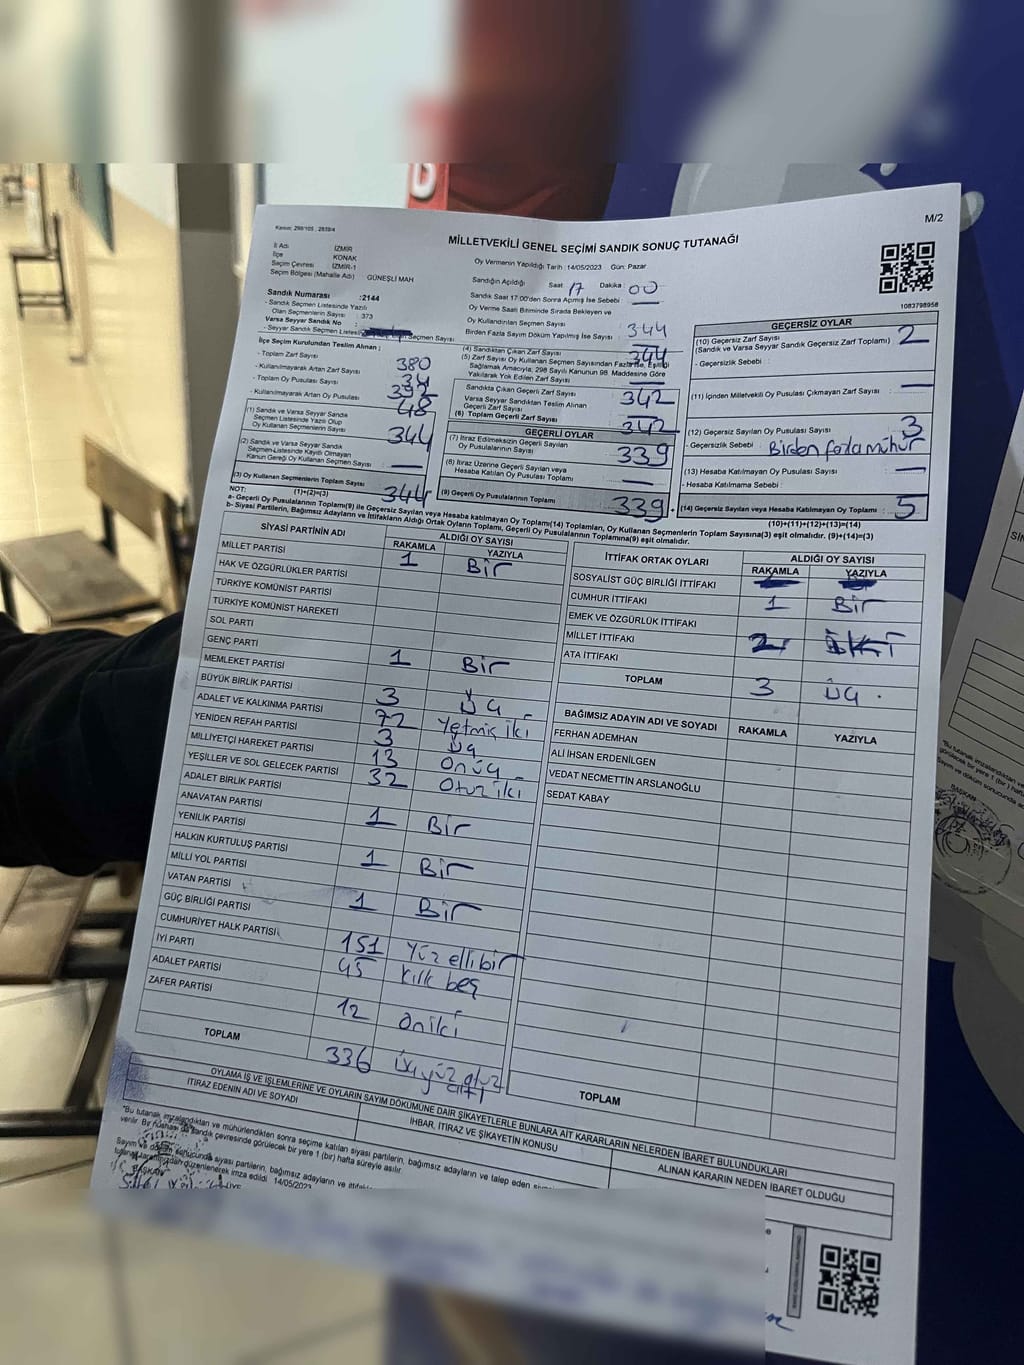 Kanun: 298/105 , 2839/4
M/2
MİLLETVEKİLİ GENEL SEÇİMİ SANDIK SONUÇ TUTANAĞI
İl Adı İZMİR
İlçe KONAK
Seçim Çevresi İZMİR-1
Seçim Bölgesi (Mahalle Adı) GÜNEŞLİ MAH
Oy Vermenin Yapıldığı Tarih :14/05/2023 Gün: Pazar
Sandığın Açıldığı Saat: 17 Dakika: 00
Sandık Saat 17:00'den Sonra Açmış İse Sebebi :
Oy Verme Saati Bitiminde Sırada Bekleyen ve
Oy Kullandırılan Seçmen Sayısı : 344
Birden Fazla Sayım Döküm Yapılmış İse Sayısı :
1083798958
Sandık Numarası :2144
- Sandık Seçmen Listesinde Yazılı
Olan Seçmenlerin Sayısı : 373
Varsa Seyyar Sandık No
İlçe Seçim Kurulundan Teslim Alınan ;
- Toplam Zarf Sayısı : 380
- Kullanılmayarak Artan Zarf Sayısı
- Toplam Oy Pusulası Sayısı : 392
- Kullanılmayarak Artan Oy Pusulası : 48
(1) Sandık ve Varsa Seyyar Sandık
Seçmen Listesinde Yazılı Olup
Oy Kullanan Seçmenlerin Sayısı : 344
(2) Sandık ve Varsa Seyyar Sandık
Seçmen Listesinde Kayıtlı Olmayan
Kanun Gereği Oy Kullanan Seçmen Sayısı : —
(3) Oy Kullanan Seçmenlerin Toplam Sayısı : 344
(1)+(2)=(3)
(4) Sandıktan Çıkan Zarf Sayısı : 344
(5) Zarf Sayısı Oy Kullanan Seçmen Sayısından Fazla ise, Eşitliği
Sağlamak Amacıyla; 298 Sayılı Kanunun 98. Maddesine Göre
Yakılarak Yok Edilen Zarf Sayısı : —
Sandıkta Çıkan Geçerli Zarf Sayısı : 342
Varsa Seyyar Sandıktan Teslim Alınan
Geçerli Zarf Sayısı : —
(6) Toplam Geçerli Zarf Sayısı : 342
GEÇERLİ OYLAR
(7) İtiraz Edilmeksizin Geçerli Sayılan
Oy Pusulalarının Sayısı : 339
(8) İtiraz Üzerine Geçerli Sayılan veya
Hesaba Katılan Oy Pusulası Toplamı : —
(9) Geçerli Oy Pusulalarının Toplamı : 339
GEÇERSİZ OYLAR
(10) Geçersiz Zarf Sayısı : 2
(Sandık ve Varsa Seyyar Sandık Geçersiz Zarf Toplamı)
- Geçersizlik Sebebi :
(11) İçinden Milletvekili Oy Pusulası Çıkmayan Zarf Sayısı : —
(12) Geçersiz Sayılan Oy Pusulası Sayısı : 3
- Geçersizlik Sebebi : Birden fazla mühür
(13) Hesaba Katılmayan Oy Pusulası Sayısı : —
- Hesaba Katılmama Sebebi :
(14) Geçersiz Sayılan veya Hesaba Katılmayan Oy Toplamı : 5
(10)+(11)+(12)+(13)=(14)
NOT:
a- Geçerli Oy Pusulalarının Toplamı(9) ile Geçersiz Sayılan veya Hesaba katılmayan Oy Toplamı(14) Toplamları, Oy Kullanan Seçmenlerin Toplam Sayısına(3) eşit olmalıdır. (9)+(14)=(3)
b- Siyasi Partilerin, Bağımsız Adayların ve İttifakların Aldığı Ortak Oyların Toplamı, Geçerli Oy Pusulalarının Toplamına(9) eşit olmalıdır.
SİYASİ PARTİNİN ADI ALDIĞI OY SAYISI
RAKAMLA YAZIYLA
MİLLET PARTİSİ 1 Bir
HAK VE ÖZGÜRLÜKLER PARTİSİ
TÜRKİYE KOMÜNİST PARTİSİ
TÜRKİYE KOMÜNİST HAREKETİ
SOL PARTİ
GENÇ PARTİ
MEMLEKET PARTİSİ 1 Bir
BÜYÜK BİRLİK PARTİSİ 3 Üç
ADALET VE KALKINMA PARTİSİ 72 Yetmiş iki
YENİDEN REFAH PARTİSİ 3 Üç
MİLLİYETÇİ HAREKET PARTİSİ 13 Onüç
YEŞİLLER VE SOL GELECEK PARTİSİ 32 Otuz iki
ADALET BİRLİK PARTİSİ
ANAVATAN PARTİSİ 1 Bir
YENİLİK PARTİSİ
HALKIN KURTULUŞ PARTİSİ 1 Bir
MİLLİ YOL PARTİSİ
VATAN PARTİSİ 1 Bir
GÜÇ BİRLİĞİ PARTİSİ
CUMHURİYET HALK PARTİSİ 151 Yüz elli bir
İYİ PARTİ 45 Kırk beş
ADALET PARTİSİ
ZAFER PARTİSİ 12 Oniki
TOPLAM 336 Üçyüz otuz altı
İTTİFAK ORTAK OYLARI ALDIĞI OY SAYISI
RAKAMLA YAZIYLA
SOSYALİST GÜÇ BİRLİĞİ İTTİFAKI
CUMHUR İTTİFAKI 1 Bir
EMEK VE ÖZGÜRLÜK İTTİFAKI
MİLLET İTTİFAKI 2 İki
ATA İTTİFAKI
TOPLAM 3 Üç
BAĞIMSIZ ADAYIN ADI VE SOYADI RAKAMLA YAZIYLA
FERHAN ADEMHAN
ALİ İHSAN ERDENİLGEN
VEDAT NECMETTİN ARSLANOĞLU
SEDAT KABAY
TOPLAM
OYLAMA İŞ VE İŞLEMLERİNE VE OYLARIN SAYIM DÖKÜMÜNE DAİR ŞİKAYETLERLE BUNLARA AİT KARARLARIN NELERDEN İBARET BULUNDUKLARI
İTİRAZ EDENİN ADI VE SOYADI İHBAR, İTİRAZ VE ŞİKAYETİN KONUSU ALINAN KARARIN NEDEN İBARET OLDUĞU
"Bu tutanak imzalandıktan ve mühürlendikten sonra seçime katılan siyasi partilerin, bağımsız adayların ve talep eden
verilir. Bir nüshası da sandık çevresinde görülecek bir yere 1 (bir) hafta süreyle asılır.
tarafımızdan düzenlenerek imza edildi 14/05/2023
BAŞKAN